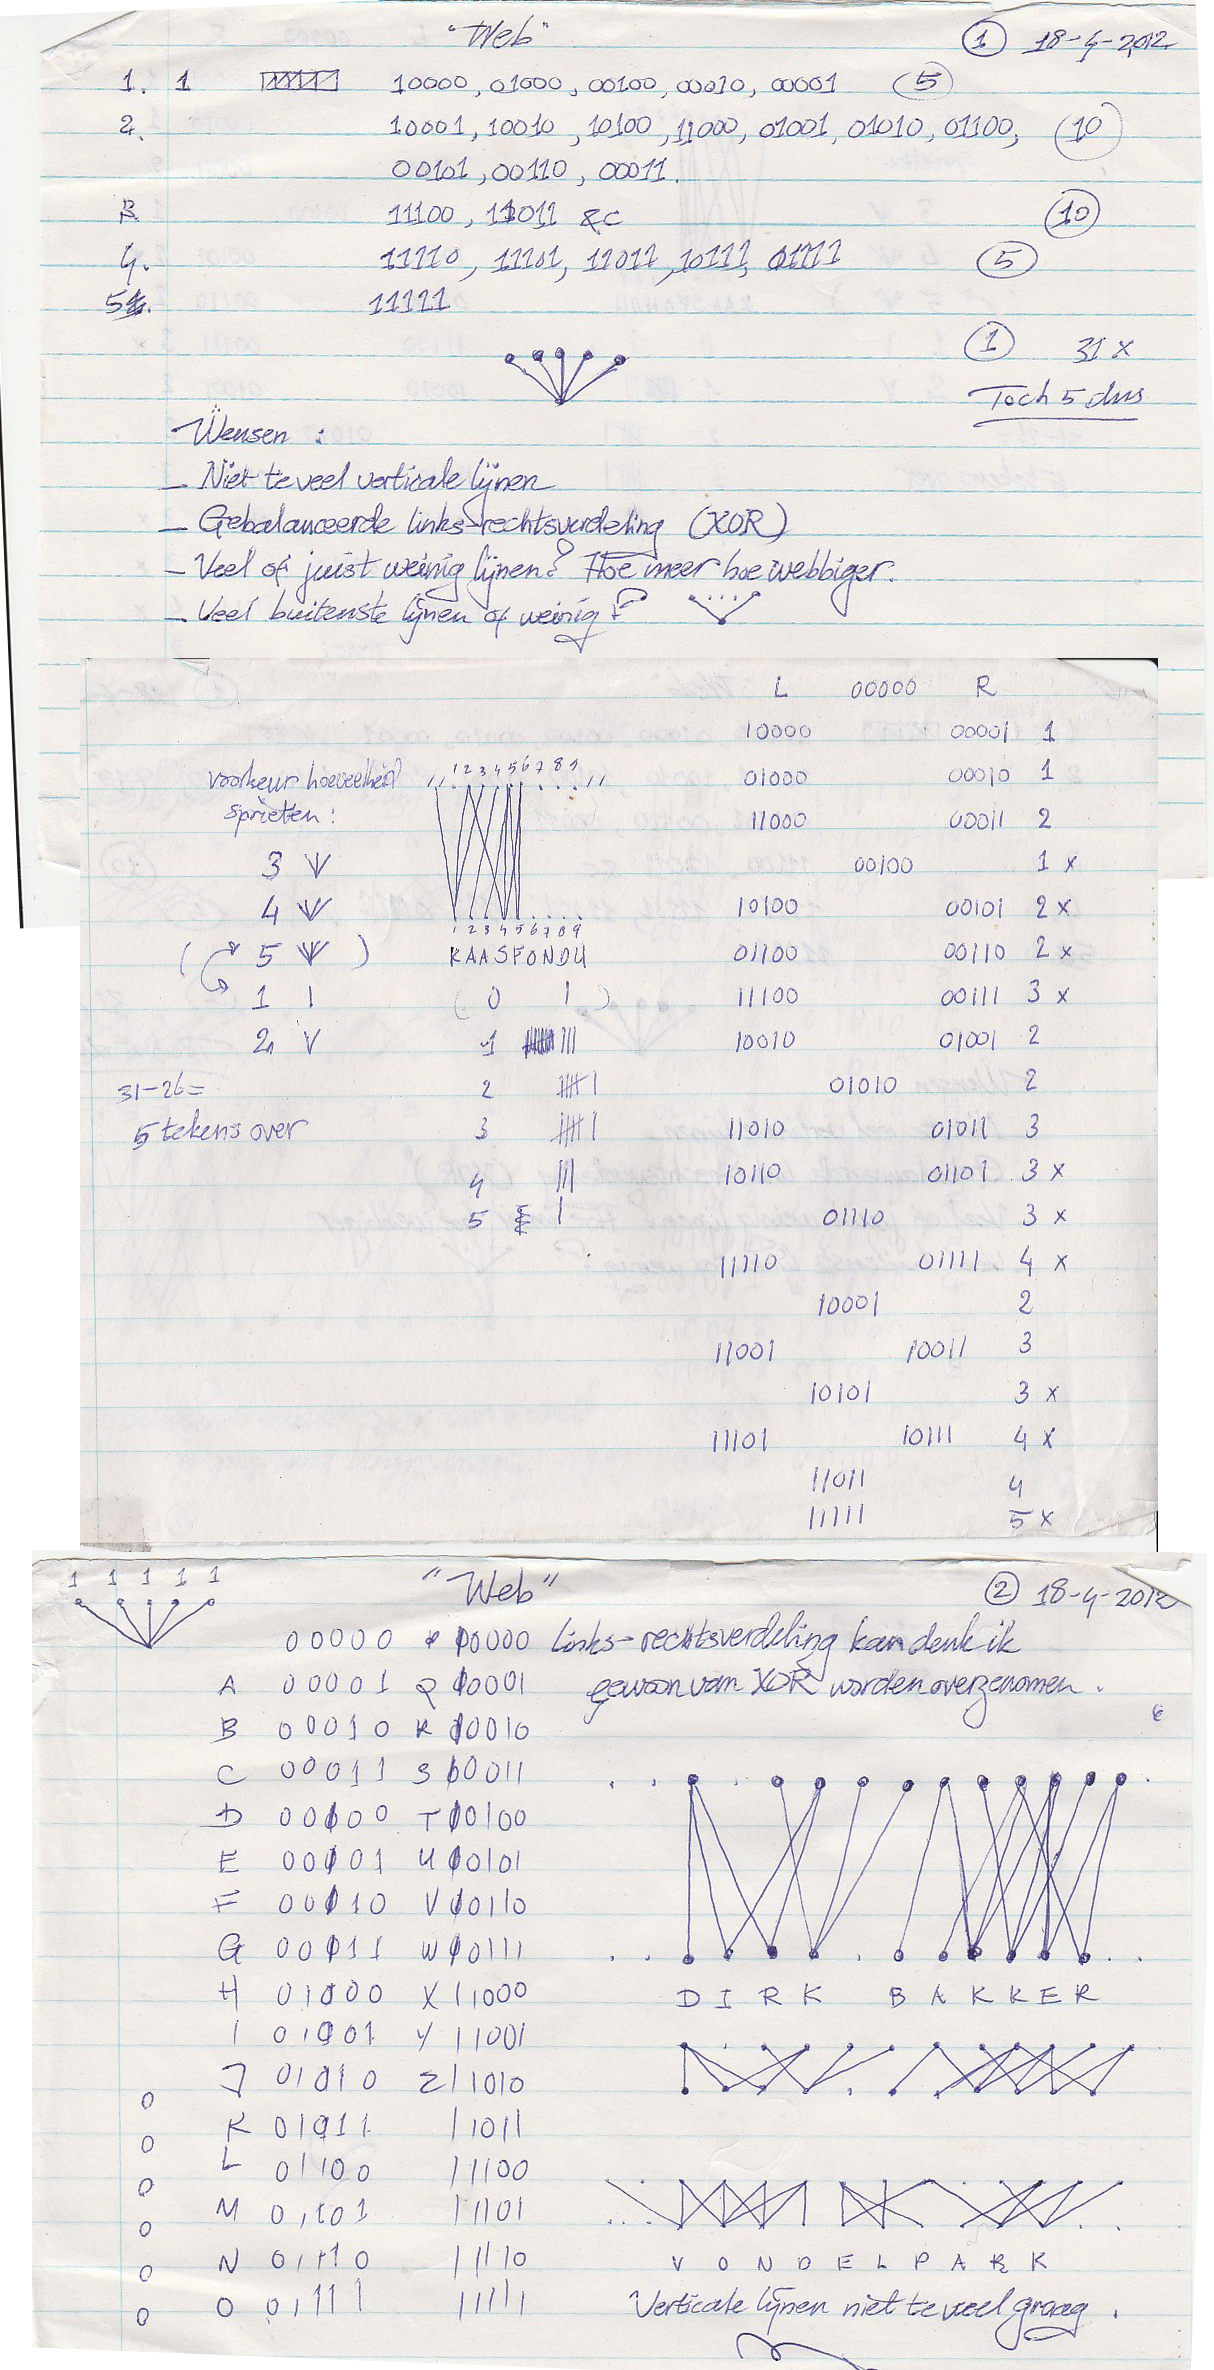 "Web" 1 18-4-2012
1. 1 10000, 01000, 00100, 00010, 00001 5
2. 10001, 10010, 10100, 11000, 01001, 01010, 01100, 10
00101, 00110, 00011.
3. 11100, 11011 &c 10
4. 11110, 11101, 11011, 10111, 01111 5
5. 11111
1 31 x
Toch 5 dus
Wensen :
- Niet te veel verticale lijnen
- Gebalanceerde links-rechtsverdeling (XOR)
- Veel of juist weinig lijnen? Hoe meer hoe webbiger.
- Veel buitenste lijnen of weinig?
L 00000 R
10000 00001 1
voorkeur hoeveelheid 1 2 3 4 5 6 7 8 9 01000 00010 1
sprieten: 11000 00011 2
3 00100 1 x
4 10100 00101 2 x
1 2 3 4 5 6 7 8 9
( 5 ) KAASFONDU 01100 00110 2 x
1 ( 0 ) 11100 00111 3 x
2 1 10010 01001 2
31-26= 2 01010 2
5 tekens over 3 11010 01011 3
4 10110 01101 3 x
5 01110 3 x
11110 01111 4 x
10001 2
11001 10011 3
10101 3 x
11101 10111 4 x
11011 4
11111 5 x
1 1 1 1 1 "Web" 2 18-4-2012
00000 10000 Links-rechtsverdeling kan denk ik
A 00001 Q 10001 gewoon van XOR worden overgenomen.
B 00010 R 10010
C 00011 S 10011
D 00100 T 10100
E 00101 U 10101
F 00110 V 10110
G 00111 W 10111
H 01000 X 11000 DIRK BAKKER
I 01001 Y 11001
J 01010 Z 11010
K 01011 11011
L 01100 11100
M 01101 11101
N 01110 11110 VONDELPARK
O 01111 11111 Verticale lijnen niet te veel graag.
0
0
0
0
0
0